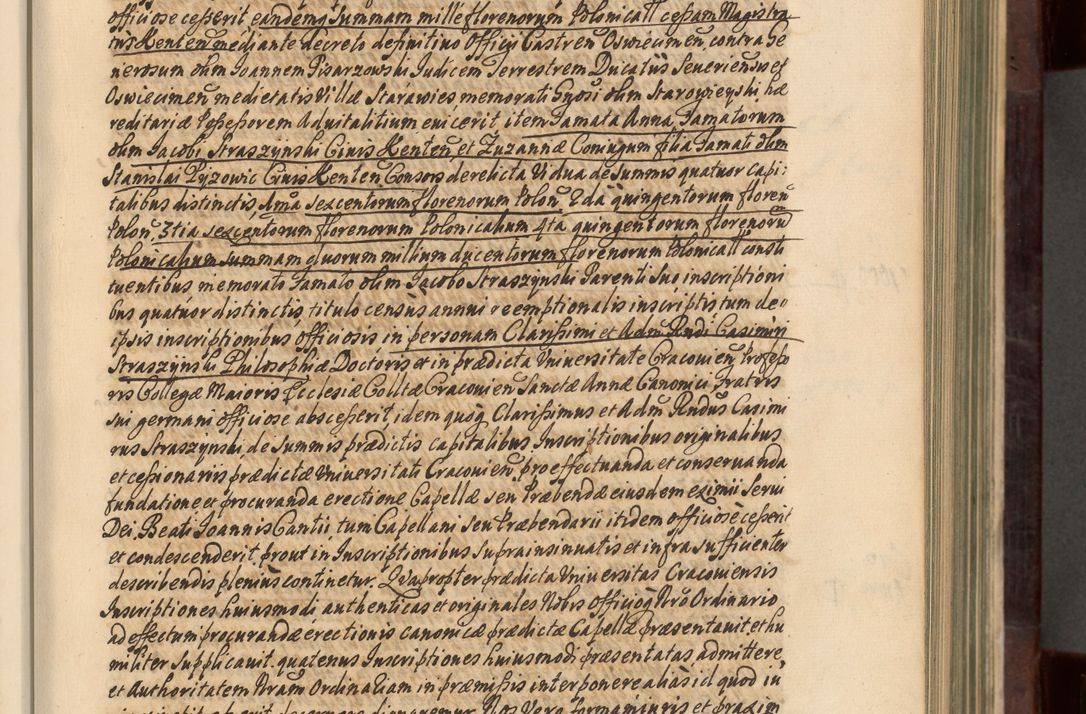 officiose cesserit eandemq Summam mille florenorum Polonicall cessam Magistra
tus Kenten mediante decreto definitivo Officij Castren Oswiecimen, contra Ge
nerosum olim Joannem Pisarzowski Judicem Terrestrem Ducatus Severiensis et
Oswiecimen medietatis Villæ Starawies memorati Gnosi olim Starowieyski, hæ
reditariæ Possessorem Advitalitium evicerit, item Famata Anna, Famatorum
olim Jacobi Straszynski Civis Kenten, et Zuzannæ Coniugum filia, Famati olim
Stanislai Pyzowic Civis Kenten Consors derelicta Vidua de Summis quatuor capi:
talibus distinctis, 1ma sexcentorum florenorum Polon 2da quingentorum floren
Polon, 3tia sexcentorum florenorum Polonicalium 4ta quingentorum florenoru
Polonicalium Summam quorum millium ducentorum florenorum Polonicall consti
tuentibus memorato Famato olim Jacobo Straszynski Parenti Suo inscriptioni
bus quatuor distinctis, titulo census annui reemptionalis inscriptis tum de
ipsis inscriptionibus officiosis in personam Clarissimi et Adm Rndi Casimiri
Straszynski Philosophiæ Doctoris et in prædicta Universitate Cracovien Professo
ris Collegæ Maioris Ecclesiæ Colltæ Cracovien Sanctæ Annæ Canonici Fratris
sui germani officiose abscesserit, idem quoq Clarissimus et Adm Rndus Casimi
rus Straszynski, de Summis prædictis capitalibus Inscriptionibus originalibus
et cessionariis prædictæ Universitati Cracovien, pro effectuanda et conservanda
fundatione et procuranda erectione Capellæ seu Præbendæ eiusdem eximii Servi
Dei, Beati Joannis Cantii, tum Capellani seu Præbendarii itidem officiose cesserit
et condescenderit, prout in Inscriptionibus suprainsinuatis et infra sufficienter
describendis plenius continetur. Quapropter prædicta Universitas Cracoviensis
Inscriptiones huiusmodi authenticas et originales Nobis Officioq Nro Ordinario
ad effectum procurandæ erectionis canonicæ prædictæ Capellæ præsentavit et hu
militer Supplicavit, quatenus Inscriptiones huiusmodi præsentatas admittere,
et Authoritatem Nram Ordinariam in præmissis interponere alias id quod in